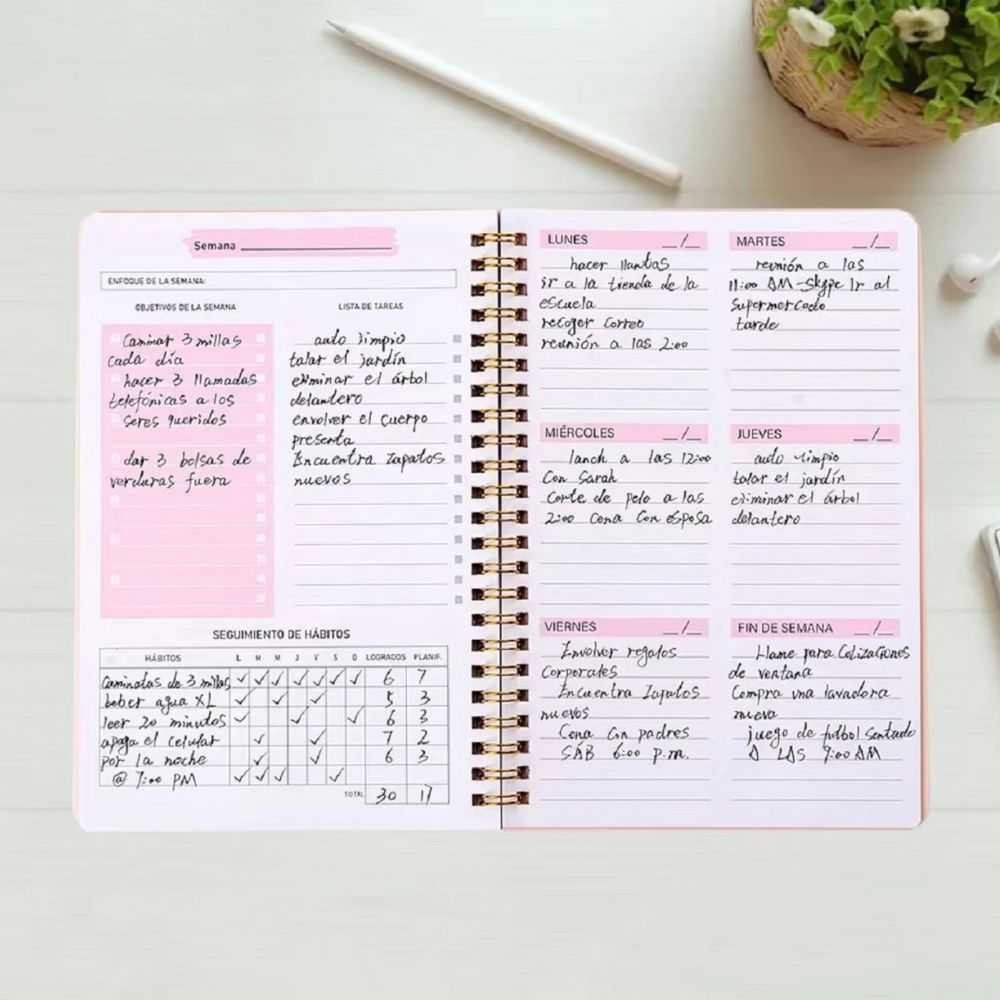 Semana
ENFOQUE DE LA SEMANA:
OBJETIVOS DE LA SEMANA
Caminar 3 millas
cada día
hacer 3 llamadas
telefónicas a los
seres queridos
dar 3 bolsas de
verduras fuera
LISTA DE TAREAS
auto limpio
talar el jardín
eliminar el árbol
delantero
envolver el cuerpo
presenta
Encuentra zapatos
nuevos
SEGUIMIENTO DE HÁBITOS
HÁBITOS L M M J V S D LOGRADOS PLANIF.
Caminatas de 3 millas ✓ ✓ ✓ ✓ ✓ ✓ ✓ 6 7
beber agua XL ✓ ✓ ✓ 5 3
leer 20 minutos ✓ ✓ ✓ 6 3
apaga el celular ✓ ✓ 7 2
por la noche ✓ ✓ 6 3
@ 7:00 PM ✓ ✓ ✓ ✓
TOTAL 30 17
LUNES _/_
hacer llantas
ir a la tienda de la
escuela
recoger correo
reunión a las 2:00
MARTES _/_
reunión a las
11:00 AM-Skype Ir al
Supermercado
tarde
MIÉRCOLES _/_
lanch a las 12:00
Con Sarah
Corte de pelo a las
2:00 Cena Con esposa
JUEVES _/_
auto limpio
talar el jardín
eliminar el árbol
delantero
VIERNES _/_
Envolver regalos
Corporales
Encuentra Zapatos
nuevos
Cena Con padres
SÁB 6:00 p.m.
FIN DE SEMANA _/_
Llame para Cotizaciones
de ventana
Compra una lavadora
nueva
juego de fútbol Sentado
A LAS 9:00 AM